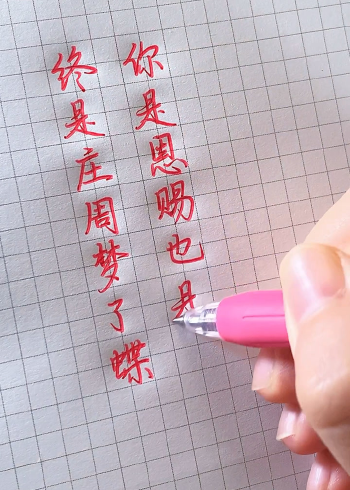 终是庄周梦了蝶
你是恩赐也